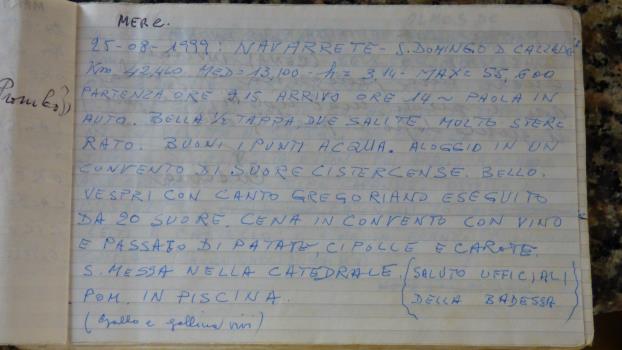 MERC.
25-08-1999: NAVARRETE - S. DOMINGO D CALZADA
Km 42,460 MED = 13,100 - h = 3,14 - MAX = 55,600
PARTENZA ORE 9,15 ARRIVO ORE 14 ~ PAOLA IN
AUTO. BELLA ½ TAPPA, DUE SALITE, MOLTO STER
RATO. BUONI I PUNTI ACQUA. ALOGGIO IN UN
CONVENTO DI SUORE CISTERCENSE. BELLO.
VESPRI CON CANTO GREGORIANO ESEGUITO
DA 20 SUORE. CENA IN CONVENTO CON VINO
E PASSATO DI PATATE, CIPOLLE E CAROTE.
S. MESSA NELLA CATEDRALE. (SALUTO UFFICIALI
POM. IN PISCINA. DELLA BADESSA)
(gallo e gallina vivi)